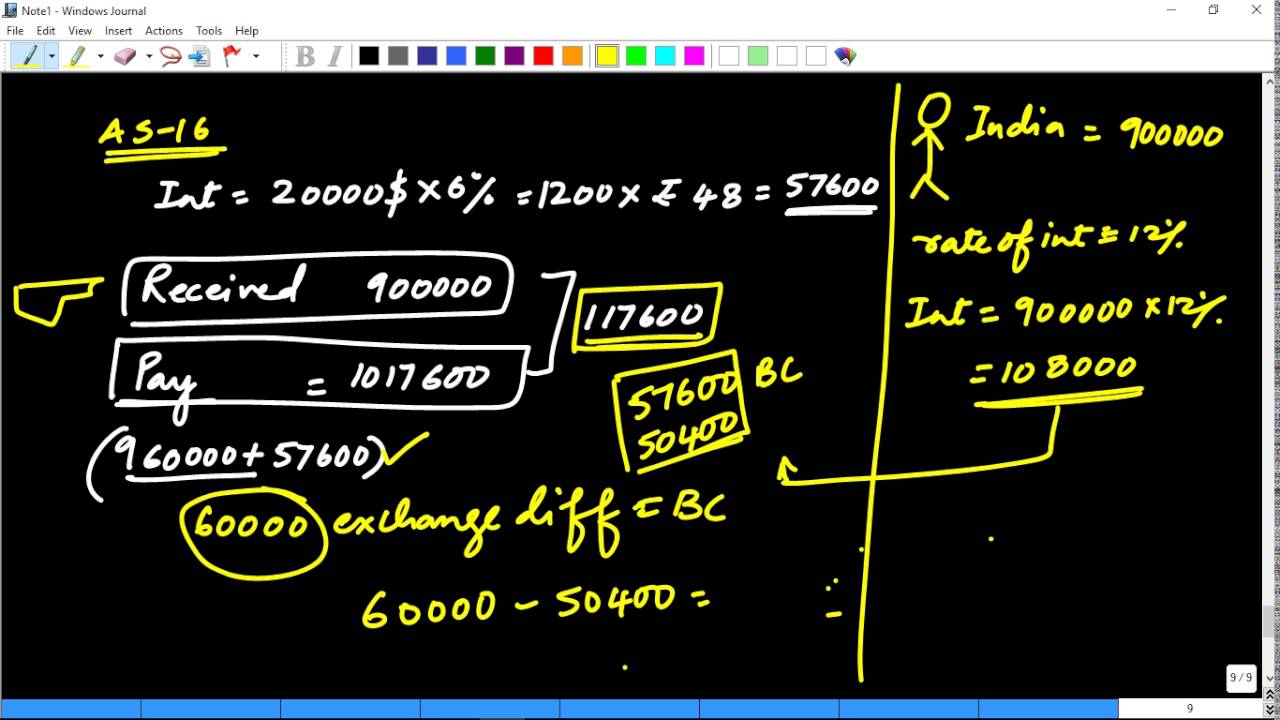 Note1 - Windows Journal
File Edit View Insert Actions Tools Help
B I
AS-16
Int = 20000$ × 6% = 1200 × ₹ 48 = 57600
Received 900000
117600
Pay = 1017600
57600 BC
50400
(960000 + 57600) ✓
60000 exchange diff = BC
60000 - 50400 =
India = 900000
rate of int = 12%
Int = 900000 × 12%
= 108000
9 / 9
9